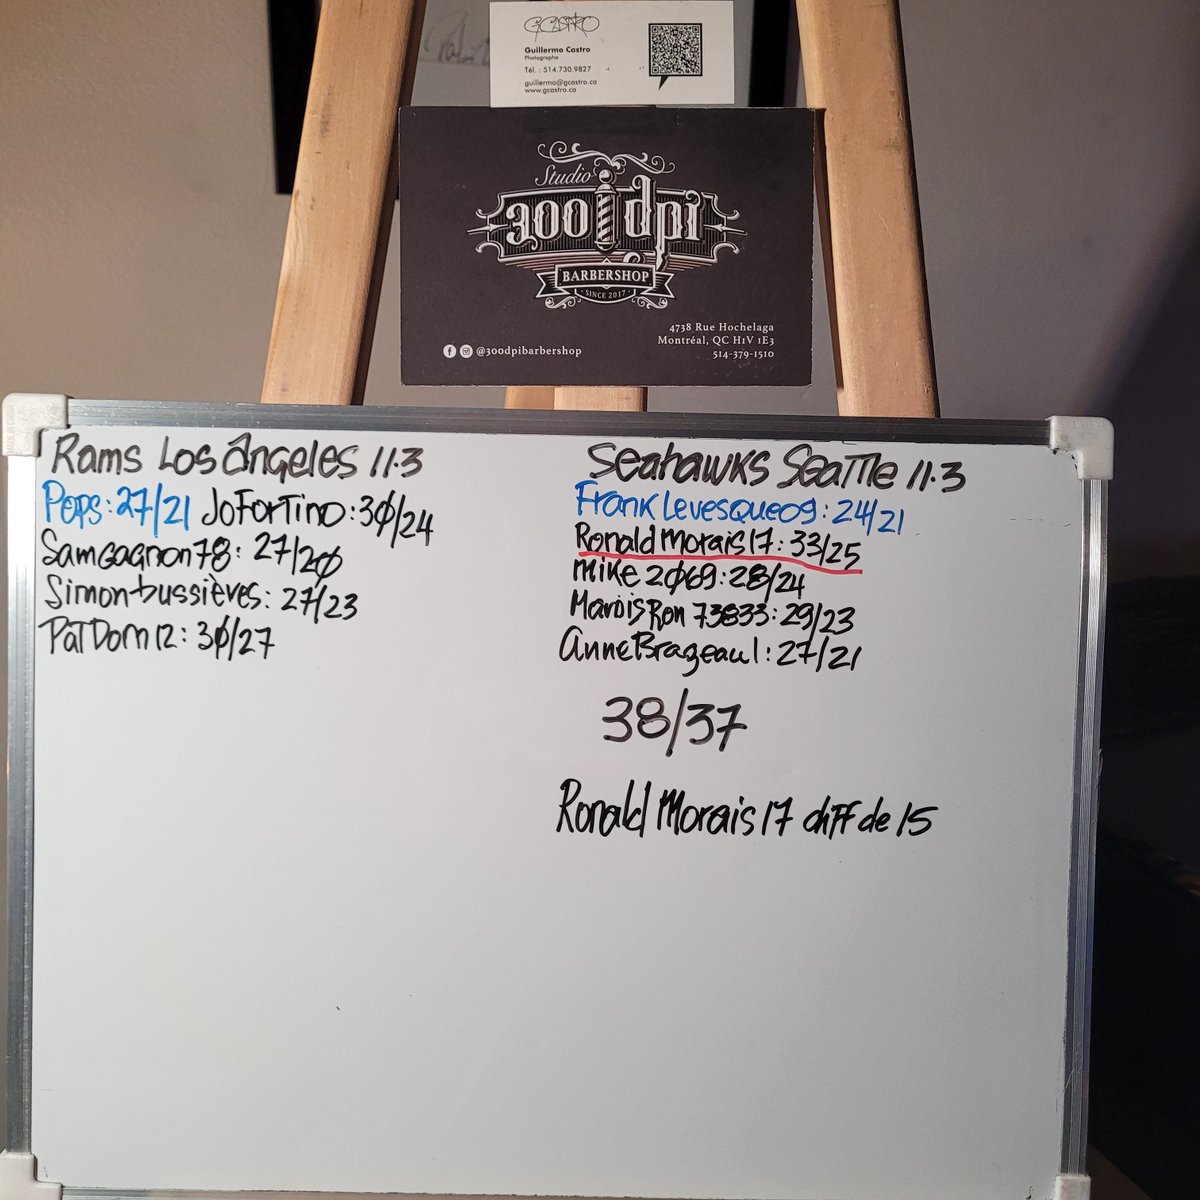 GCASTRO
Guillermo Castro
Photographe
Tél. : 514.730.9827
guillermo@gcastro.ca
www.gcastro.ca
Studio
300 dpi
BARBERSHOP
SINCE 2017
4738 Rue Hochelaga
Montréal, QC H1V 1E3
514-379-1510
@300dpibarbershop
Rams Los Ángeles 11.3
Pops: 27/21 JoFortino: 30/24
Samgagnon78: 27/20
Simonbussières: 27/23
PatDom12: 30/27
Seahawks Seattle 11.3
FrankLevesque09: 24/21
Ronald Morais17: 33/25
Mike2069: 28/24
MaroisRon73833: 29/23
AnneBrageau1: 27/21
38/37
Ronald Morais17 diff de 15